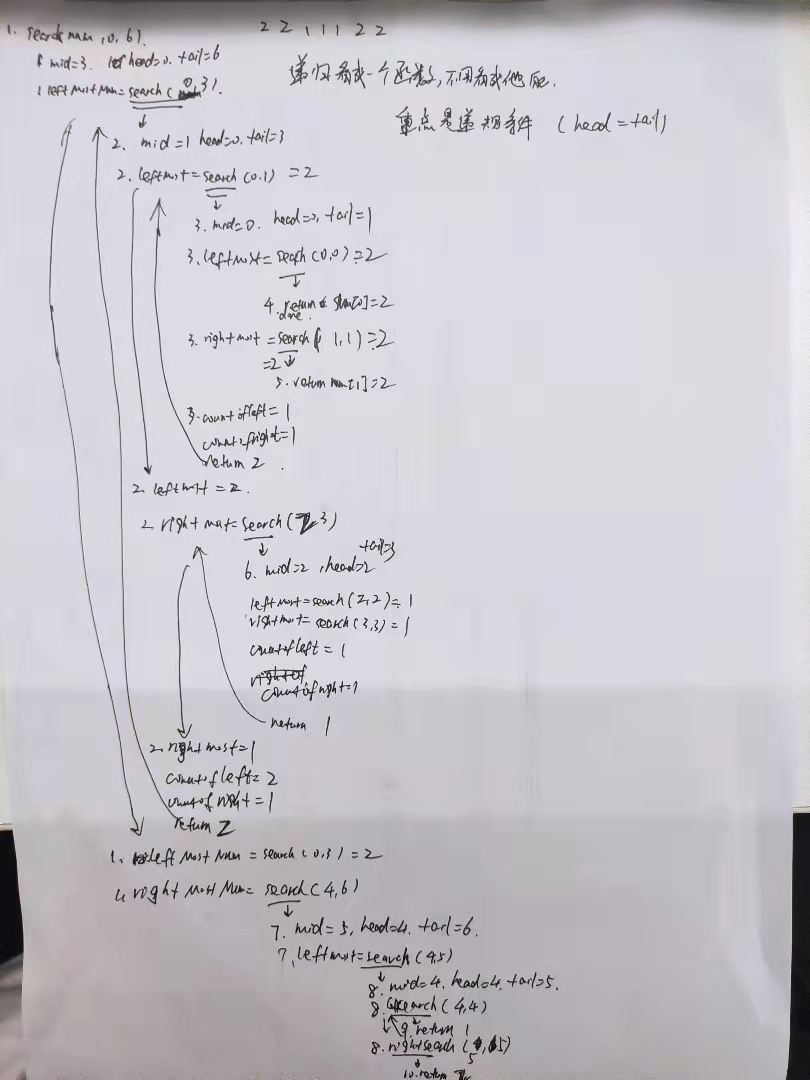 1. search num, 0, 6).
2 2 1 1 1 2 2
1 mid=3. head=0. tail=6
递归看成一个函数,不用看成他
1 left Most Num = search ( 0 3).
重点是递归条件 (head = tail)
2. mid=1 head=0, tail=3
2. leftmost = search (0,1) = 2
3. mid=0. head=0, tail=1
3. leftmost = search (0,0) = 2
4. return num[0]=2
done.
3. rightmost = search ( 1,1) = 2
=2
5. return num[1]=2
3. count of left = 1
count of right = 1
return 2.
2. leftmost = 2.
2. right most = search (2, 3)
tail=3
6. mid=2, head=2
left most = search (2,2) = 1
rightmost = search (3,3) = 1
count of left = 1
count of right = 1
return 1
2. right most = 1
count of left = 2
count of right = 1
return 2
1. left Most Num = search (0,3) = 2
1. right Most Num = search (4,6)
7. mid = 5, head=4. tail=6.
7. leftmost = search (4,5)
8. mid=4. head=4. tail=5.
8. search (4,4)
9. return 1
8. right search ( ,5)
5
10. return